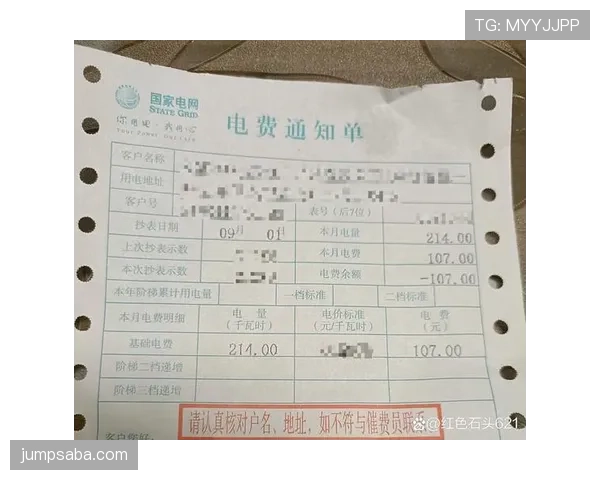 TG: MYYJJPP
国家电网
STATE GRID
你用电·我用心
YOUR POWER OUR CARE
电费通知单
客户名称
用电地址
客户号
表号（后7位）
抄表日期 09月 01日 本月电量 214.00
上次抄表示数 本月电费 107.00
本次抄表示数 电费余额 -107.00
本年阶梯累计用电量 一档标准 二档标准
本月电费明细 电 量 （千瓦时） 电价标准 （元/千瓦时） 电 费 （元）
基础电费 214.00 107.00
阶梯二档递增
阶梯三档递增
请认真核对户名、地址，如不符与催费员联系
客户您好：
@红色石头621
jumpsaba.com